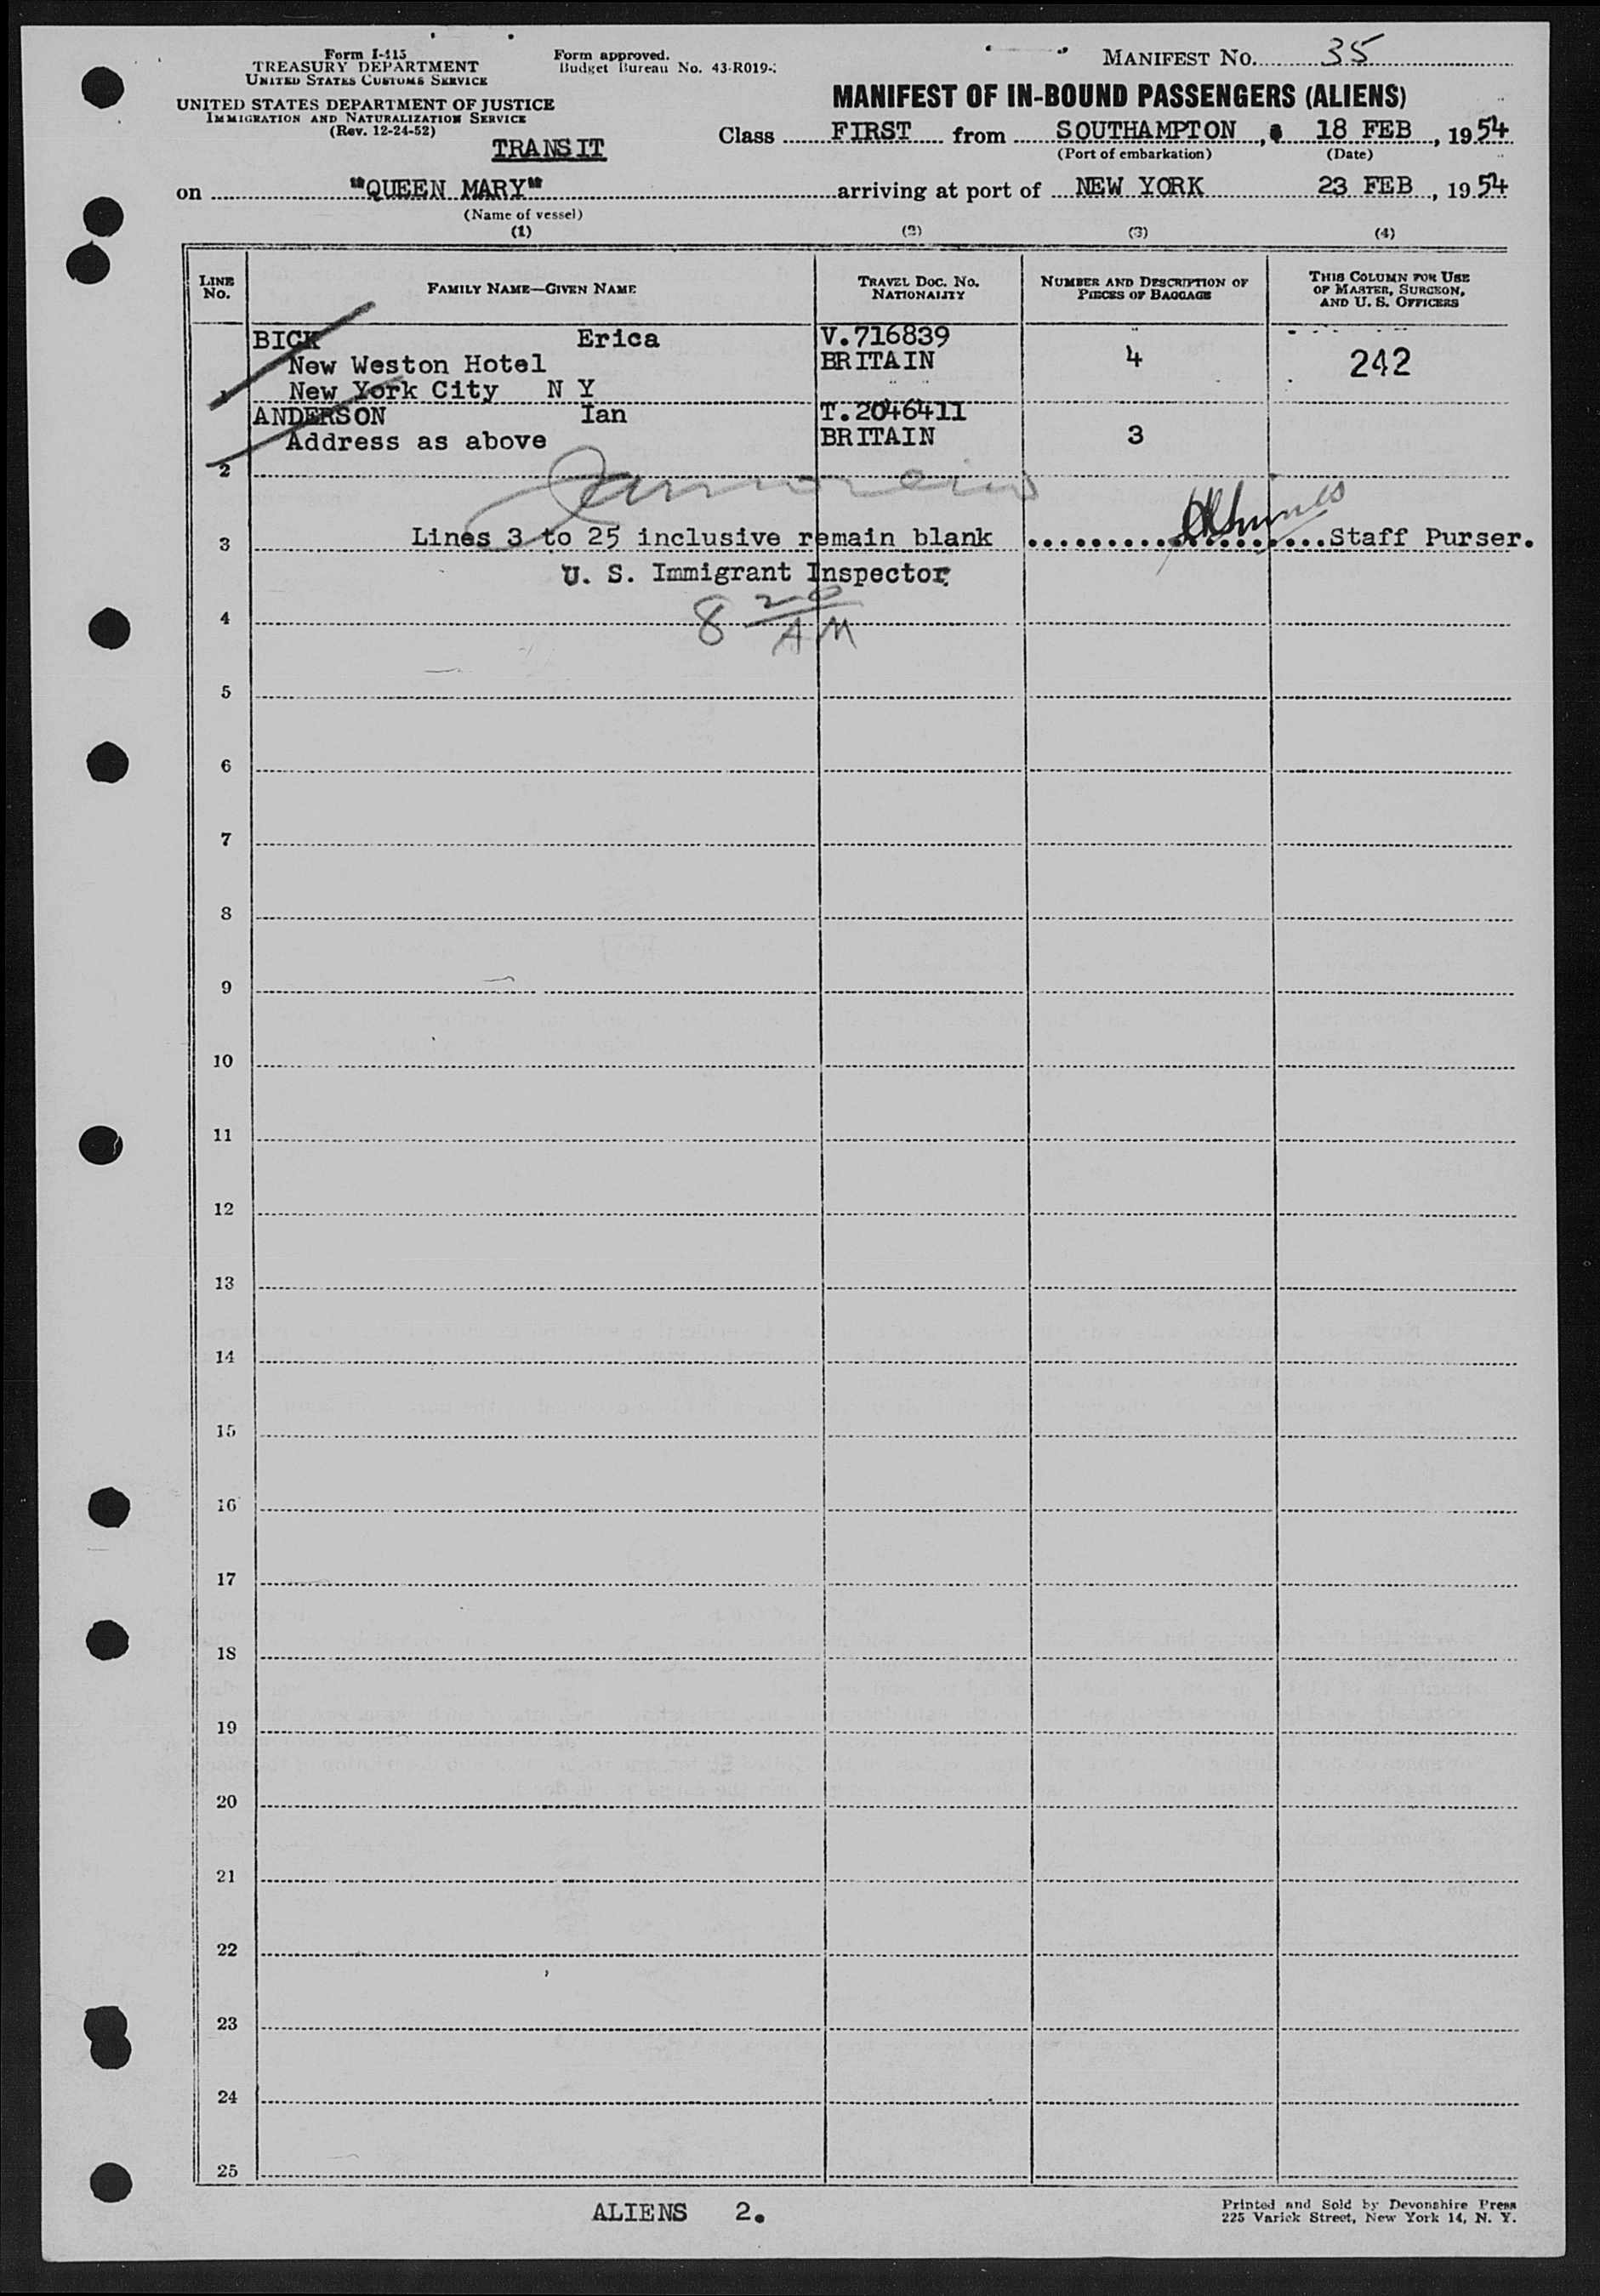 Form I-415
TREASURY DEPARTMENT
UNITED STATES CUSTOMS SERVICE
UNITED STATES DEPARTMENT OF JUSTICE
IMMIGRATION AND NATURALIZATION SERVICE
(Rev. 12-24-52)
Form approved.
Budget Bureau No. 43-R019-
TRANSIT
MANIFEST NO. 35
MANIFEST OF IN-BOUND PASSENGERS (ALIENS)
Class FIRST from SOUTHAMPTON, 18 FEB, 1954
(Port of embarkation) (Date)
on "QUEEN MARY" arriving at port of NEW YORK 23 FEB, 1954
(Name of vessel)
(1) (2) (3) (4)
LINE NO. FAMILY NAME—GIVEN NAME TRAVEL DOC. NO. NATIONALITY NUMBER AND DESCRIPTION OF PIECES OF BAGGAGE THIS COLUMN FOR USE OF MASTER, SURGEON, AND U. S. OFFICERS
BICK Erica V.716839
New Weston Hotel BRITAIN 4 242
1 New York City N Y
ANDERSON Ian T.2046411
Address as above BRITAIN 3
2
3 Lines 3 to 25 inclusive remain blank ....................Staff Purser.
U. S. Immigrant Inspector
4 8 20 AM
5
6
7
8
9
10
11
12
13
14
15
16
17
18
19
20
21
22
23
24
25
ALIENS 2.
Printed and Sold by Devonshire Press
225 Varick Street, New York 14, N. Y.